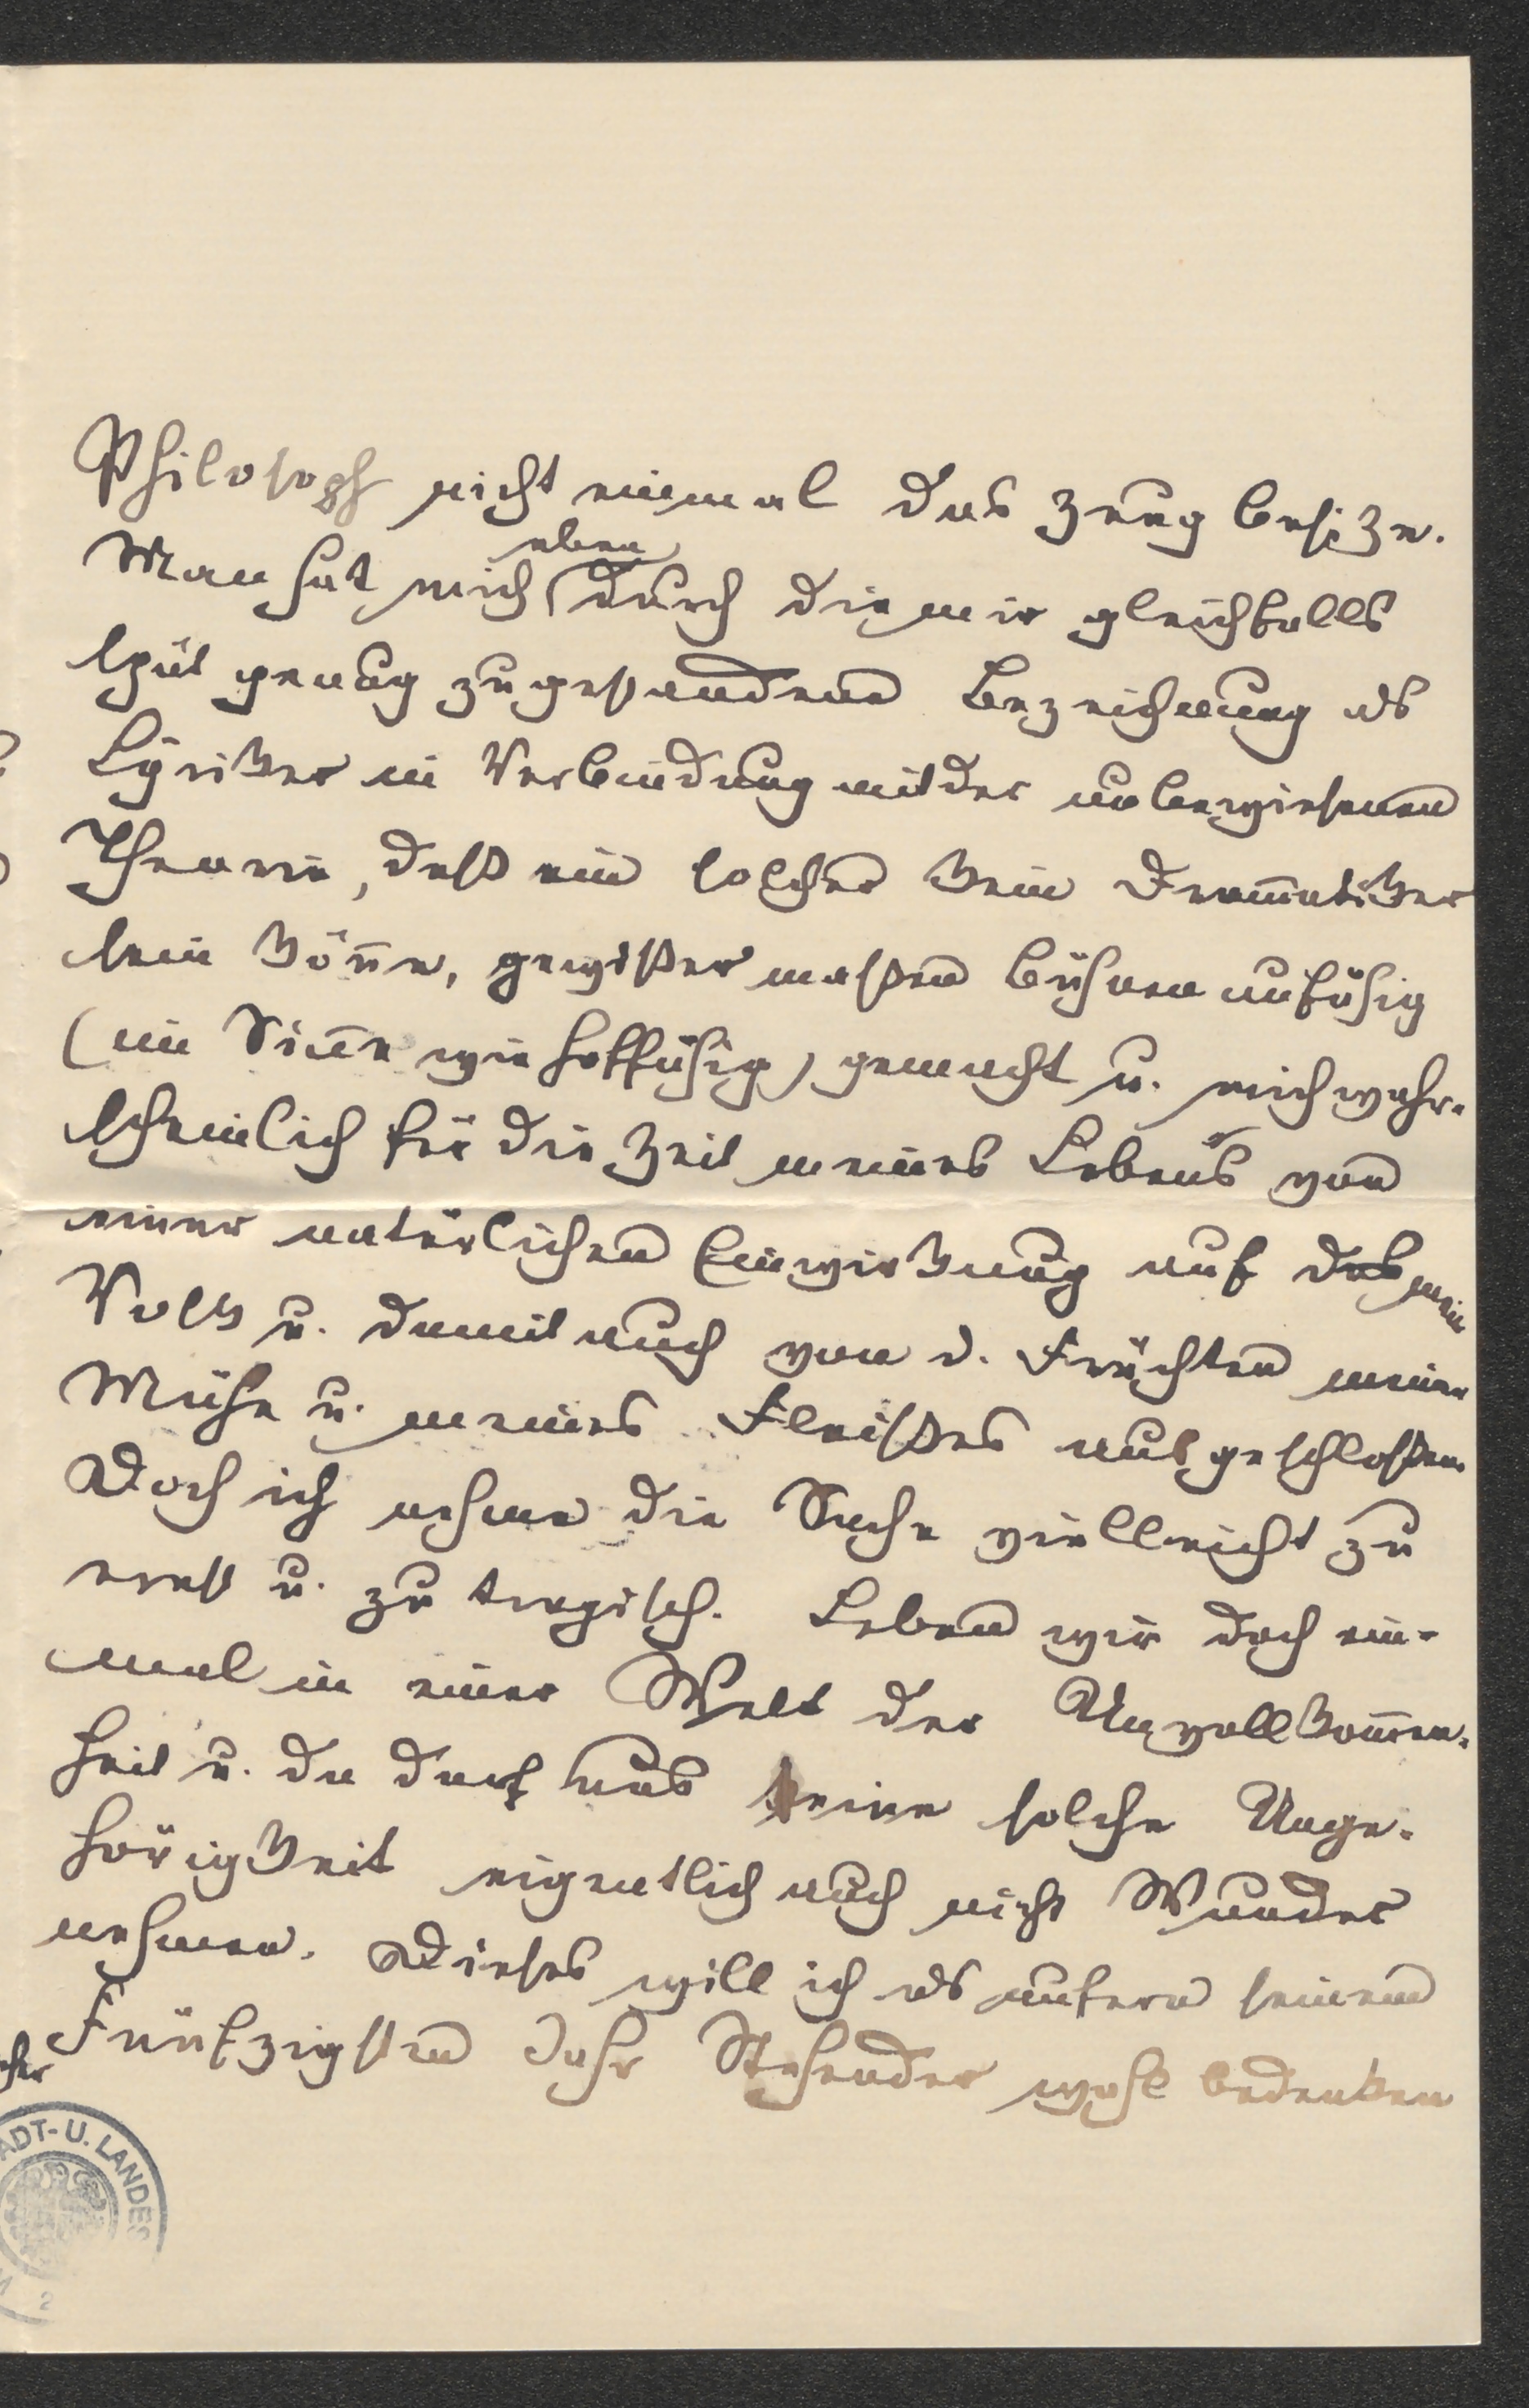 Philosoph nicht einmal das Zeug besize.
eben
Man hat mich durch die mir gleichfalls
spät genug zugestandene Bezeichnung als
Lyriker in Verbindung mit der unbewiesenen
Theorie, daß ein solcher kein Dramatiker
sein könne, gewissermaßen bühnenunfähig
(im Sinne wie hoffähig) gemacht u. mich wahr-
scheinlich für die Zeit meines Lebens von
einer natürlichen Einwirkung auf das mein
Volk u. damit auch von d. Früchten meiner
Mühe u. meines Fleißes ausgeschlossen
Doch ich nehme die Sache vielleicht zu
ernst u. zu tragisch. Leben wir doch ein-
mal in einer Welt der Unvollkommen-
heit u. da darf uns eine solche Unge-
hörigkeit eigentlich auch nicht Wunder
nehmen. Dieses will ich als unfern seinem
Fünfzigsten Jahr Stehender wohl bedenken
ADT- U. LANDES
2